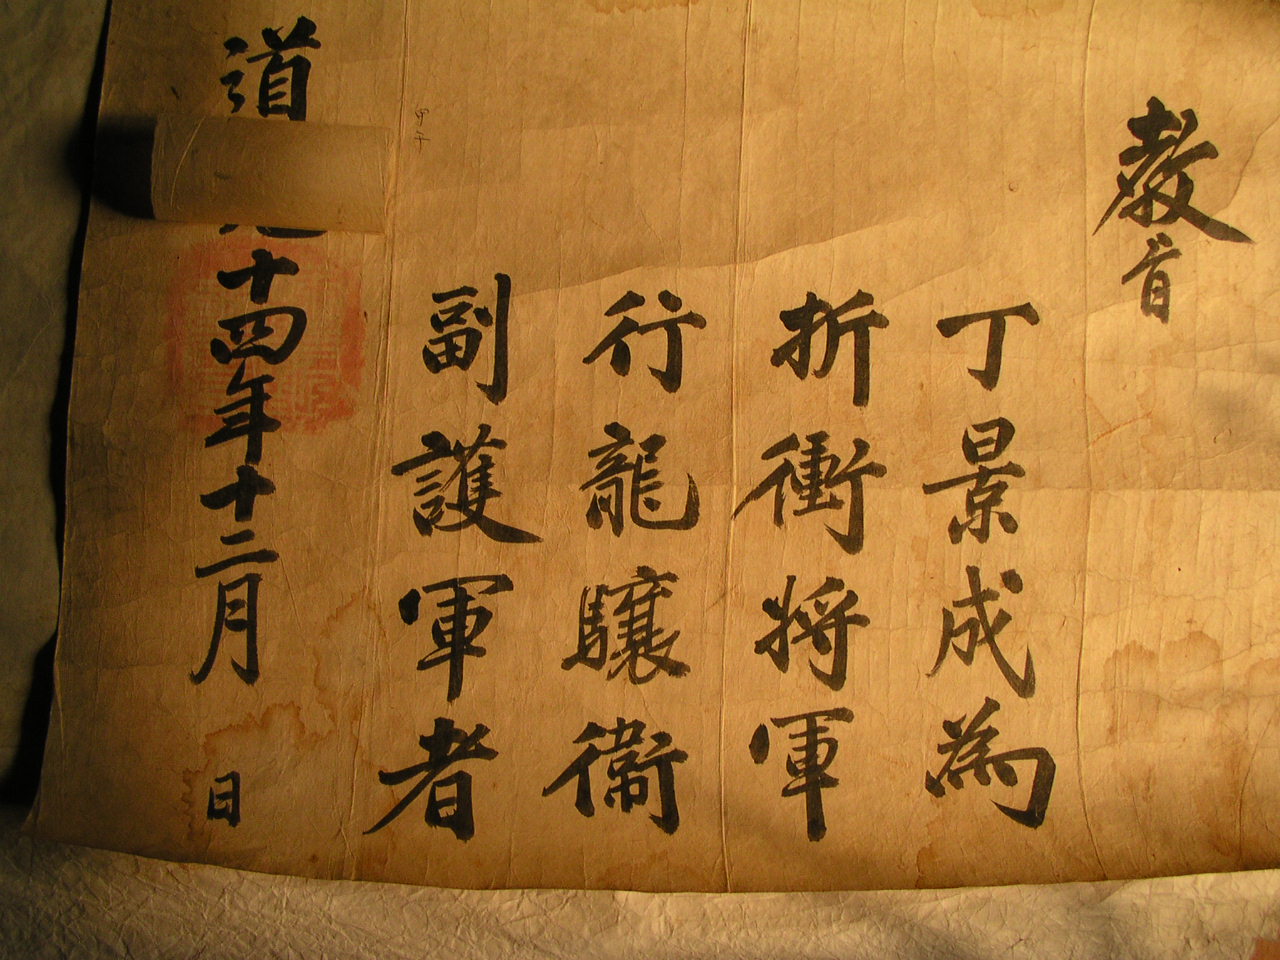 教旨
丁景成為
折衝将軍
行龍驤衛
副護軍者
甲午
道光十四年十二月 日